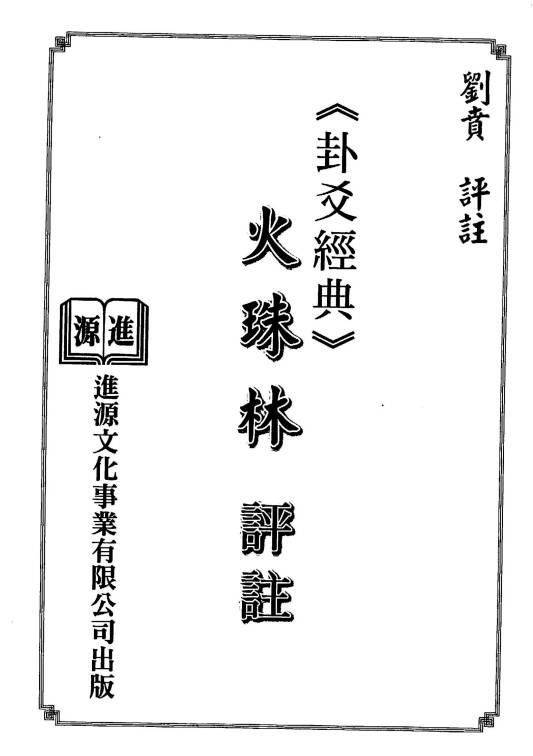 劉賁 評註
《卦爻經典》
火珠林 評註
進源
進源文化事業有限公司出版